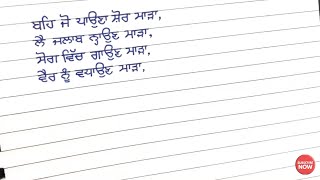 ਬਹਿ ਜੋ ਪਾਉਣ ਸ਼ੋਰ ਮਾੜਾ,
ਲੈ ਜਲਾਬ ਨ੍ਹਾਉਣ ਮਾੜਾ,
ਸੋਗ ਵਿੱਚ ਗਾਉਣ ਮਾੜਾ,
ਵੈਰ ਨੂੰ ਵਧਾਉਣ ਮਾੜਾ,
NOW